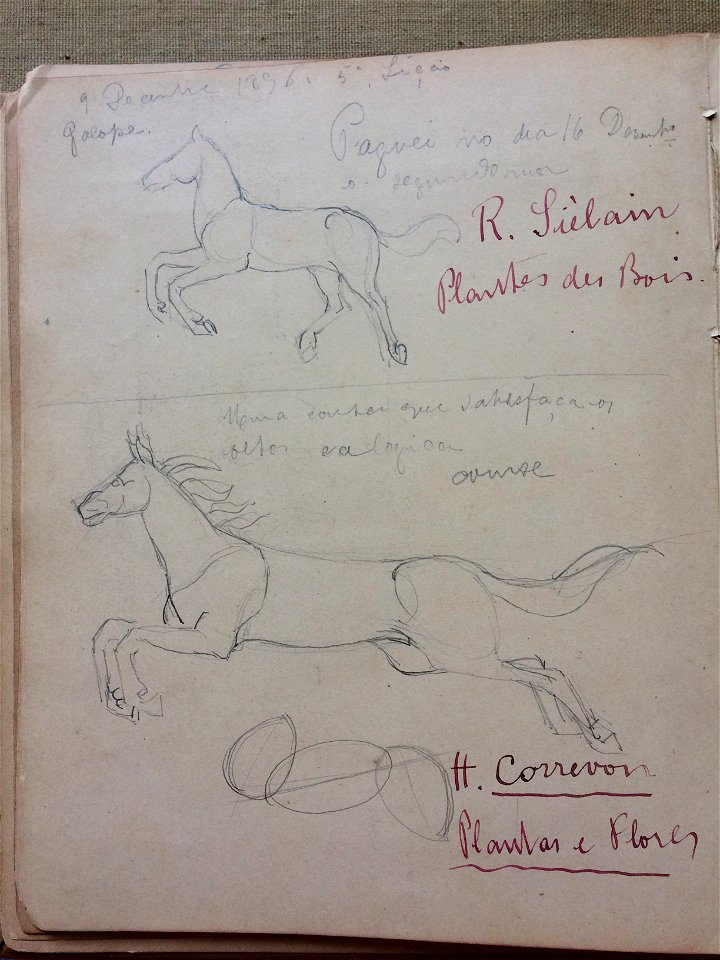 9 Decembre 1896. 5ª Lição
Galope.
Paguei no dia 16 Desenho
o segundo mez
R. Siélain
Plantes des Bois.
Uma que satisfaça os
e a logica
H. Correvon
Plantas e Flores